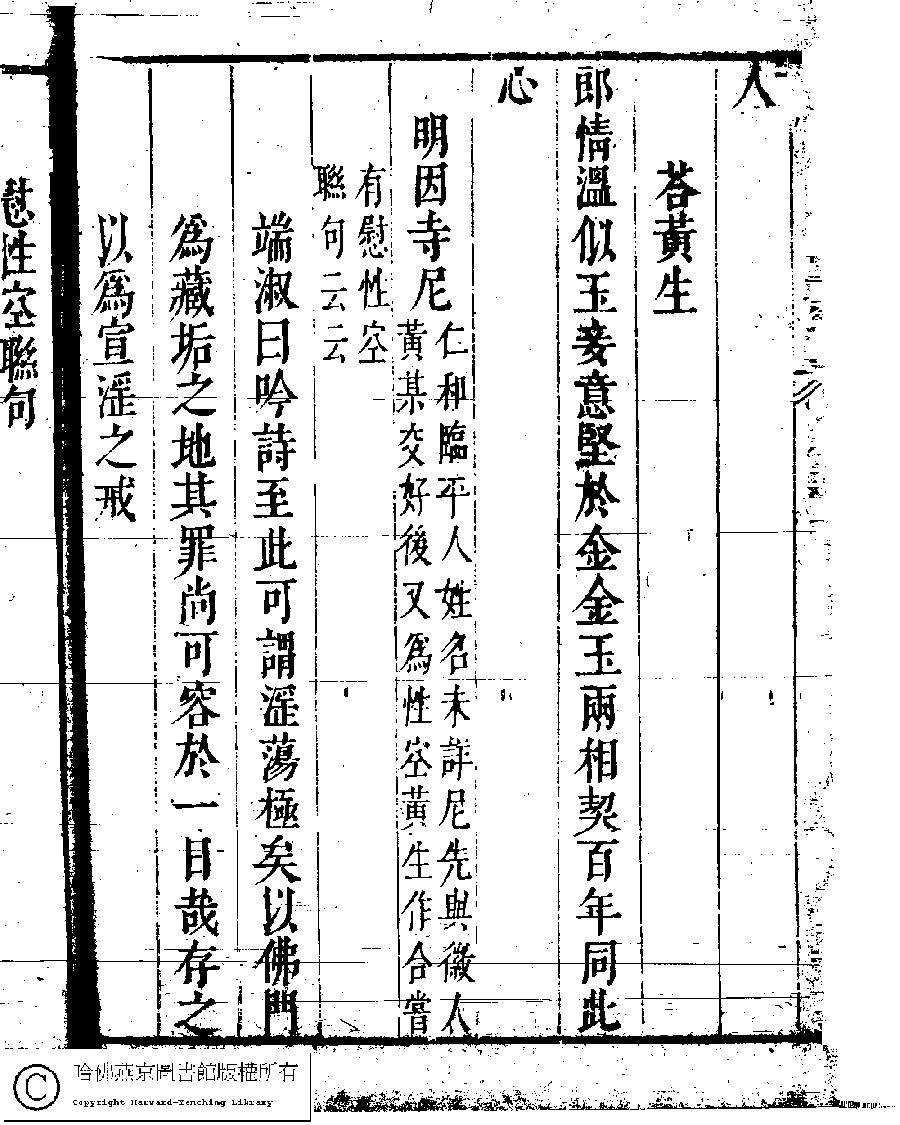 人
荅黃生
郎情溫似玉妾意堅於金金玉兩相契百年同此
心
明因寺尼
仁和臨平人姓名未詳尼先與徽人
黃某交好後又爲性空黃生作合嘗
有慰性空
聯句云云
端淑曰吟詩至此可謂淫蕩極矣以佛門
爲藏垢之地其罪尚可容於一日哉存之
以爲宣淫之戒
慰性空聯句
哈佛燕京圖書館版權所有
Copyright Harvard-Yenching Library